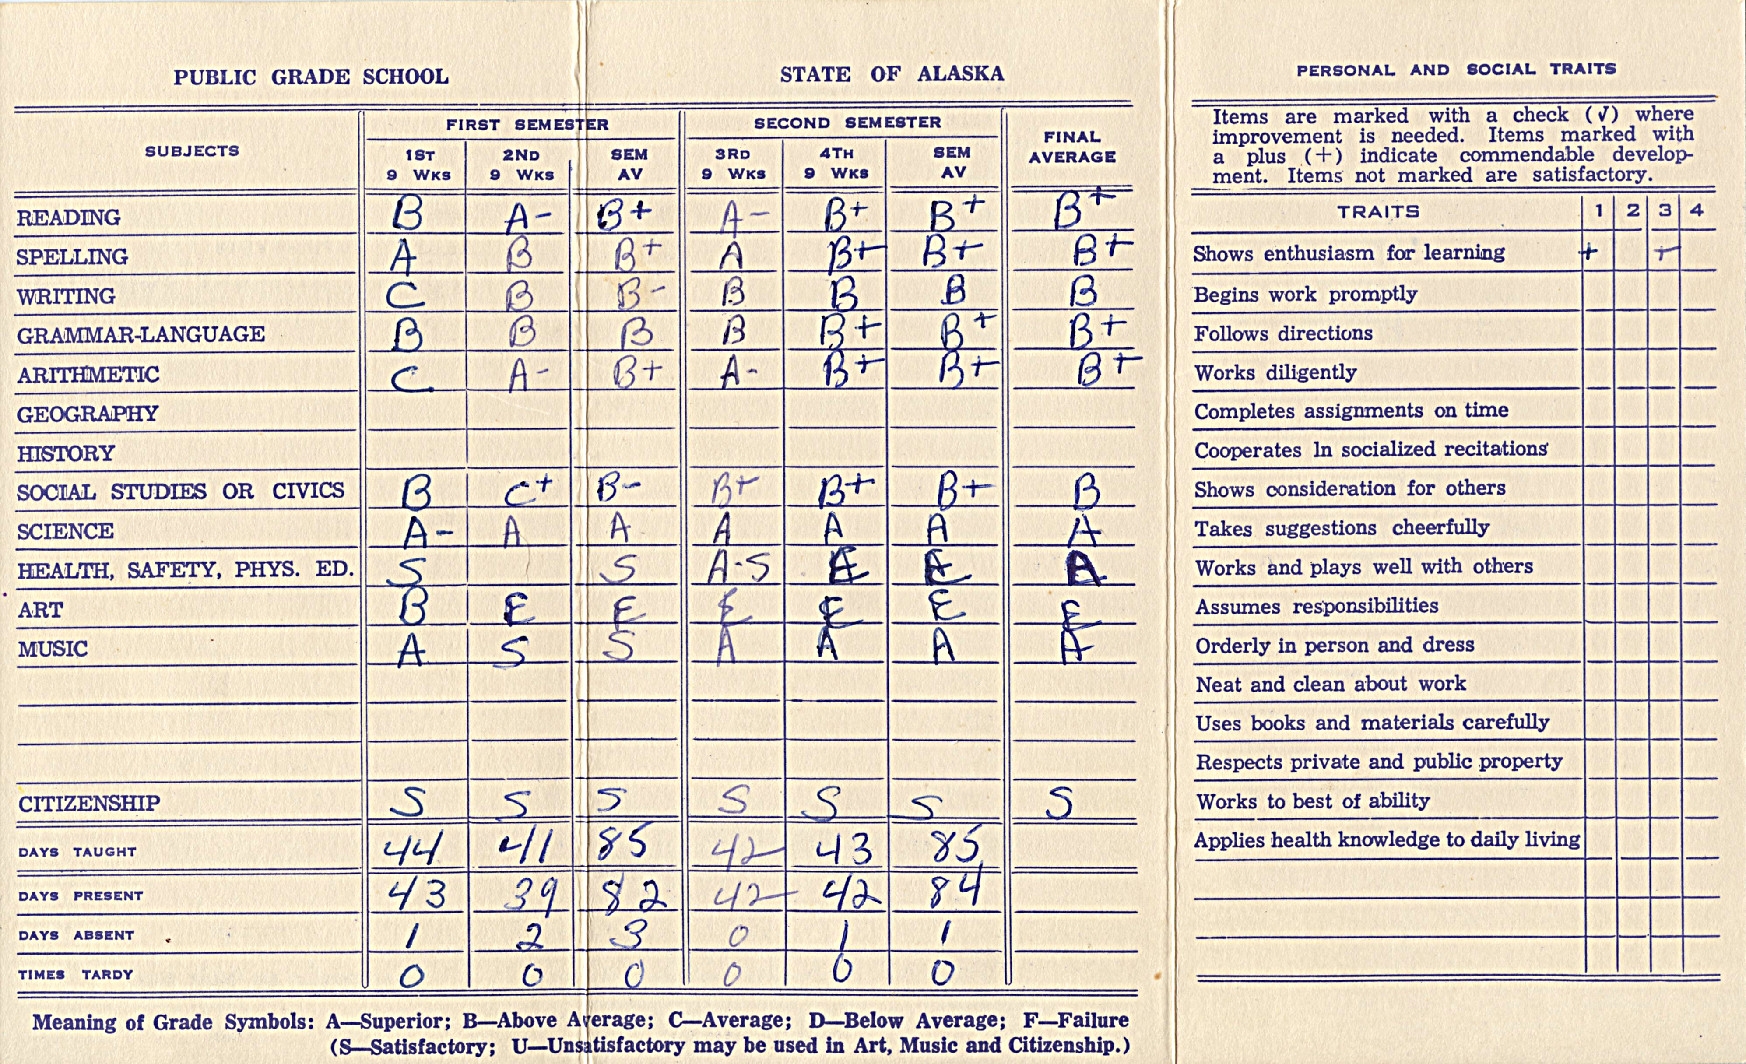 PUBLIC GRADE SCHOOL STATE OF ALASKA
SUBJECTS FIRST SEMESTER SECOND SEMESTER FINAL AVERAGE
1ST 9 WKS 2ND 9 WKS SEM AV 3RD 9 WKS 4TH 9 WKS SEM AV
READING B A- B+ A- B+ B+ B+
SPELLING A B B+ A B+ B+ B+
WRITING C B B- B B B B
GRAMMAR-LANGUAGE B B B B B+ B+ B+
ARITHMETIC C A- B+ A- B+ B+ B+
GEOGRAPHY
HISTORY
SOCIAL STUDIES OR CIVICS B C+ B- B+ B+ B+ B
SCIENCE A- A A A A A A
HEALTH, SAFETY, PHYS. ED. S S A-S A
ART B E E E E E E
MUSIC A S S A A A A
CITIZENSHIP S S S S S S S
DAYS TAUGHT 44 41 85 42 43 85
DAYS PRESENT 43 39 82 42 42 84
DAYS ABSENT 1 2 3 0 1 1
TIMES TARDY 0 0 0 0 0 0
Meaning of Grade Symbols: A—Superior; B—Above Average; C—Average; D—Below Average; F—Failure
(S—Satisfactory; U—Unsatisfactory may be used in Art, Music and Citizenship.)
PERSONAL AND SOCIAL TRAITS
Items are marked with a check (√) where
improvement is needed. Items marked with
a plus (+) indicate commendable develop-
ment. Items not marked are satisfactory.
TRAITS 1 2 3 4
Shows enthusiasm for learning + +
Begins work promptly
Follows directions
Works diligently
Completes assignments on time
Cooperates In socialized recitations
Shows consideration for others
Takes suggestions cheerfully
Works and plays well with others
Assumes responsibilities
Orderly in person and dress
Neat and clean about work
Uses books and materials carefully
Respects private and public property
Works to best of ability
Applies health knowledge to daily living